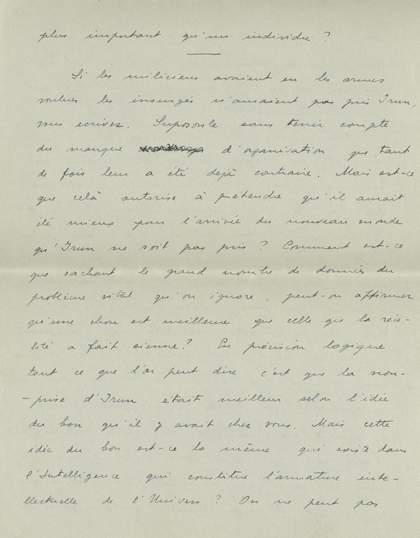 plus important qu'un individu ?
Si les miliciens avaient eu les armes
voulues les insurgés n'auraient pas pris Irun,
vous écrivez. Supposons le sans tenir compte
du manque d'organisation que tant
de fois leur a été déjà contraire. Mais est-ce
que celà autorise à prétendre qu'il aurait
été mieux pour l'arrivée du nouveau monde
qu'Irun ne soit pas pris ? Comment est-ce
que sachant le grand nombre de données du
problème vital qu'on ignore, peut-on affirmer
qu'une chose est meilleure que celle que la réa-
lité a fait sienne ? En précision logique
tout ce que l'on peut dire c'est que la non-
-prise d'Irun etait meilleur selon l'idée
du bon qu'il y avait chez vous. Mais cette
idée du bon est-ce la même qui existe dans
l'Intelligence qui constitue l'armature inte-
llectuelle de l'Univers ? On ne peut pas